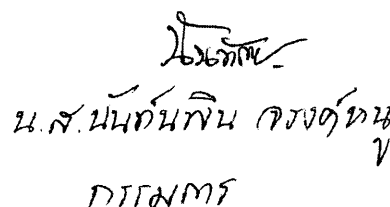 น.ส.นันท์นพิน จรงค์หนู
กรรมการ